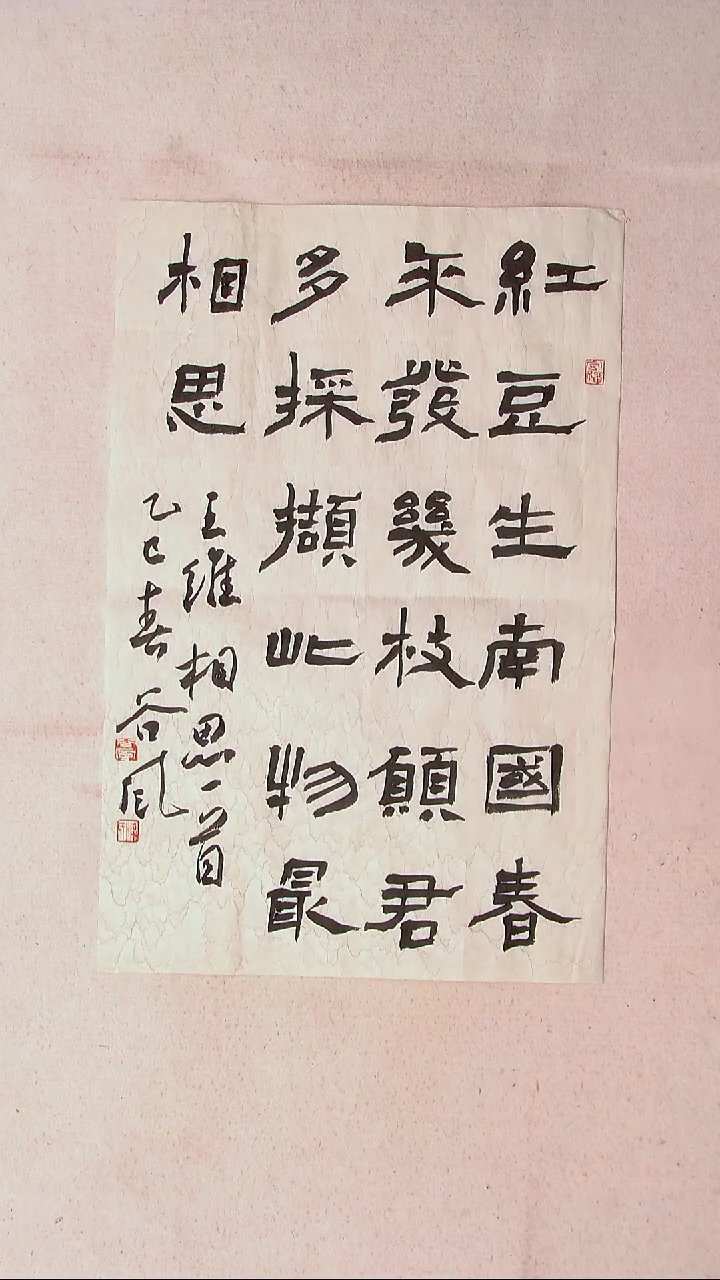 紅豆生南國春
来發幾枝願君
多採擷此物最
相思
王維相思一首
乙巳春谷风